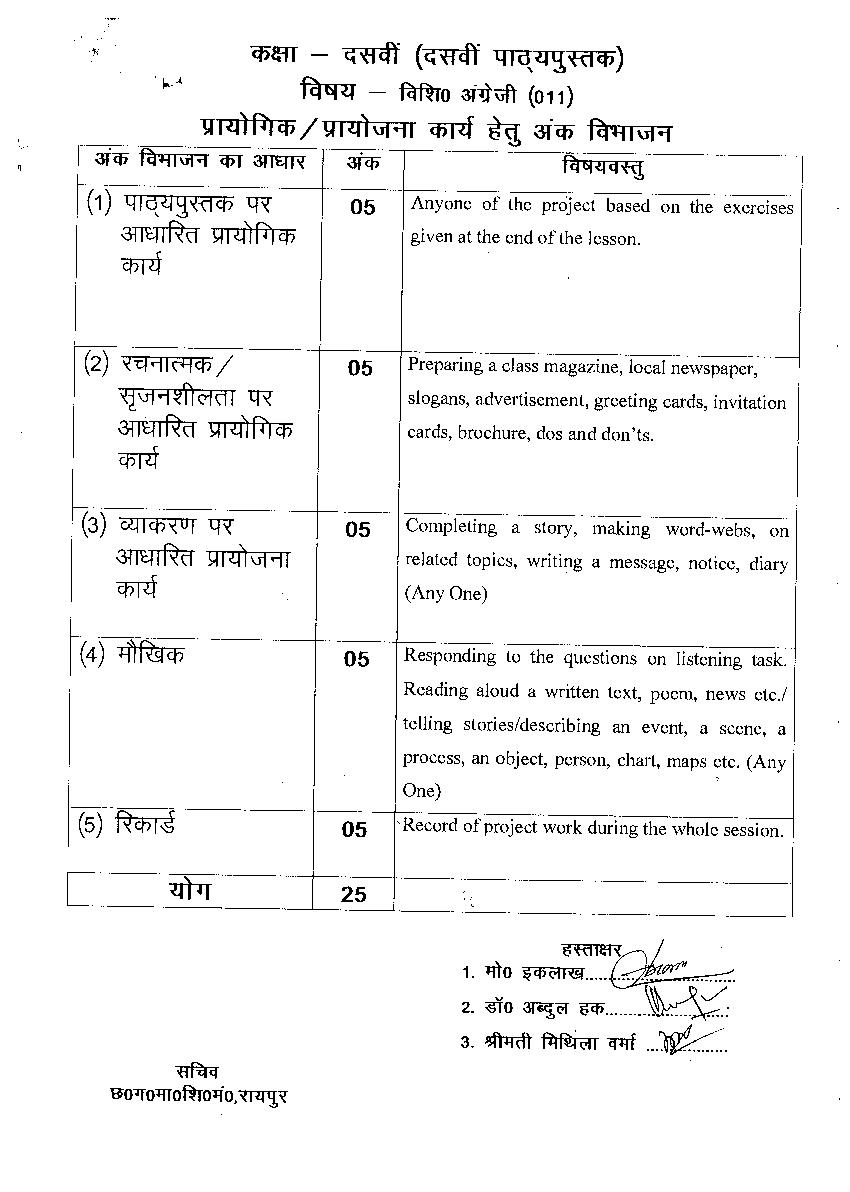 कक्षा – दसवीं (दसवीं पाठ्यपुस्तक)
विषय – विशि0 अंग्रेजी (011)
प्रायोगिक/प्रायोजना कार्य हेतु अंक विभाजन
अंक विभाजन का आधार अंक विषयवस्तु
(1) पाठ्यपुस्तक पर 05 Anyone of the project based on the exercises
आधारित प्रायोगिक given at the end of the lesson.
कार्य
(2) रचनात्मक/ 05 Preparing a class magazine, local newspaper,
सृजनशीलता पर slogans, advertisement, greeting cards, invitation
आधारित प्रायोगिक cards, brochure, dos and don'ts.
कार्य
(3) व्याकरण पर 05 Completing a story, making word-webs, on
आधारित प्रायोजना related topics, writing a message, notice, diary
कार्य (Any One)
(4) मौखिक 05 Responding to the questions on listening task.
Reading aloud a written text, poem, news etc./
telling stories/describing an event, a scene, a
process, an object, person, chart, maps etc. (Any
One)
(5) रिकार्ड 05 Record of project work during the whole session.
योग 25
हस्ताक्षर
1. मो0 इकलाख
2. डॉ0 अब्दुल हक
3. श्रीमती मिथिला वर्मा
सचिव
छ0ग0मा0शि0मं0,रायपुर